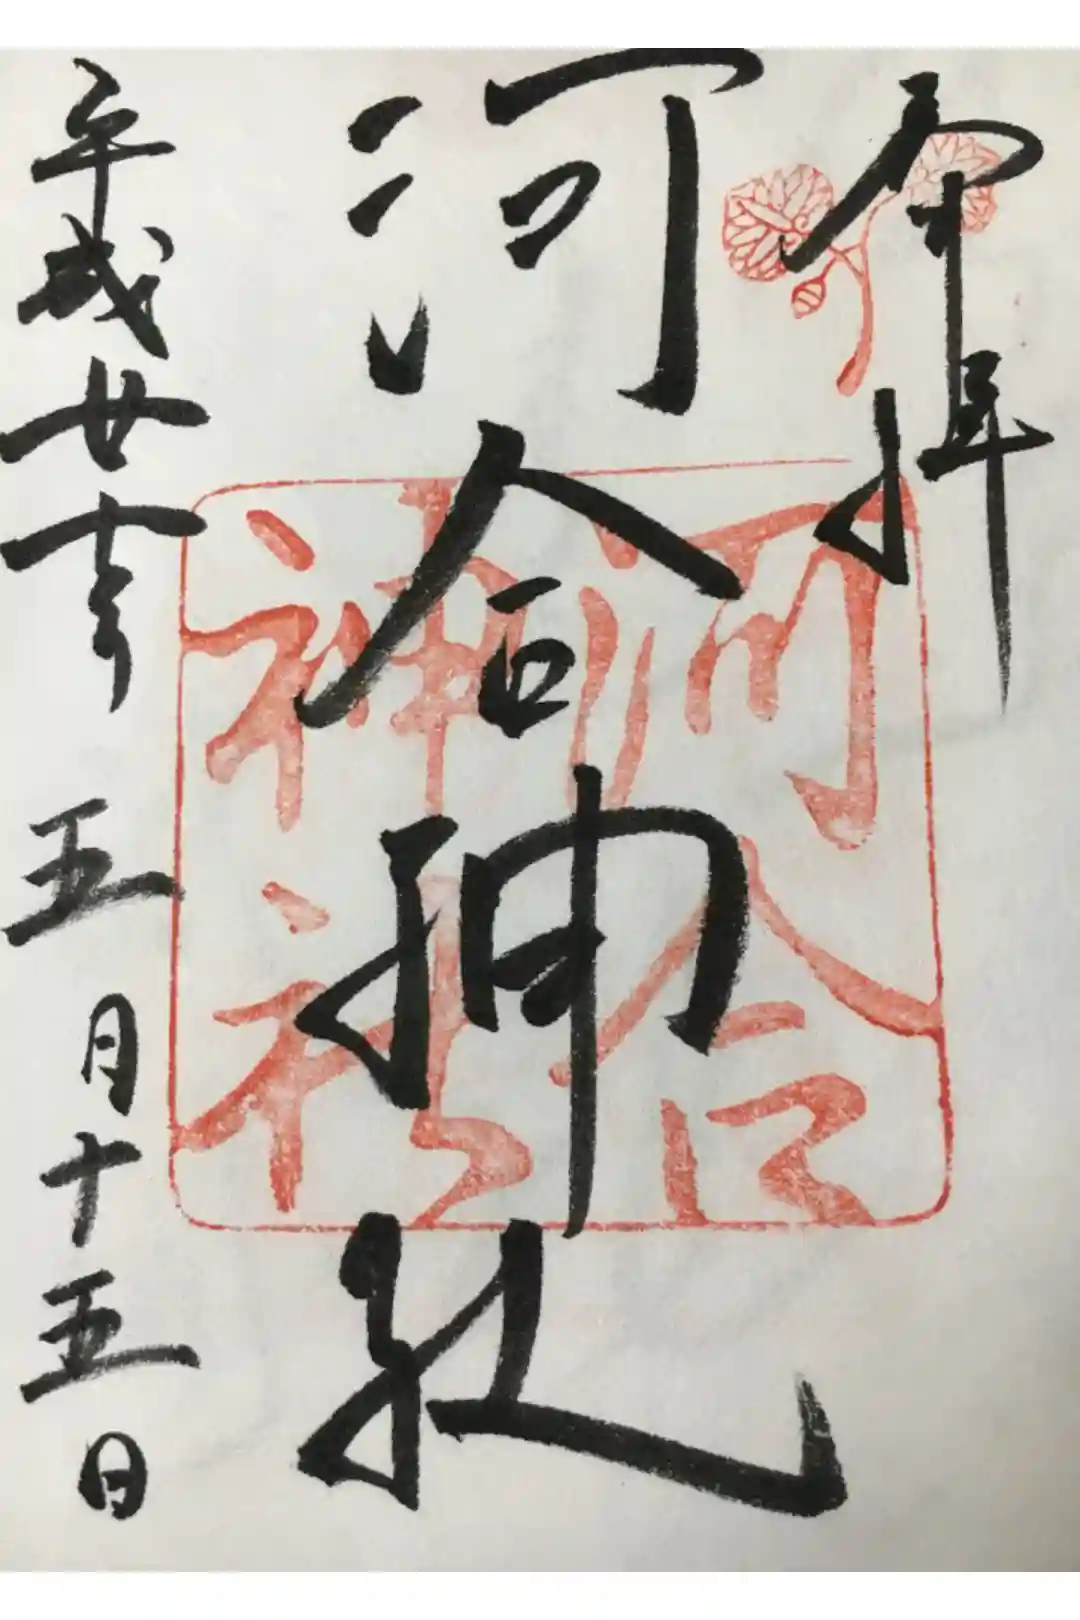 奉拝
河合神社
平成廿七年五月十五日
河合
神社